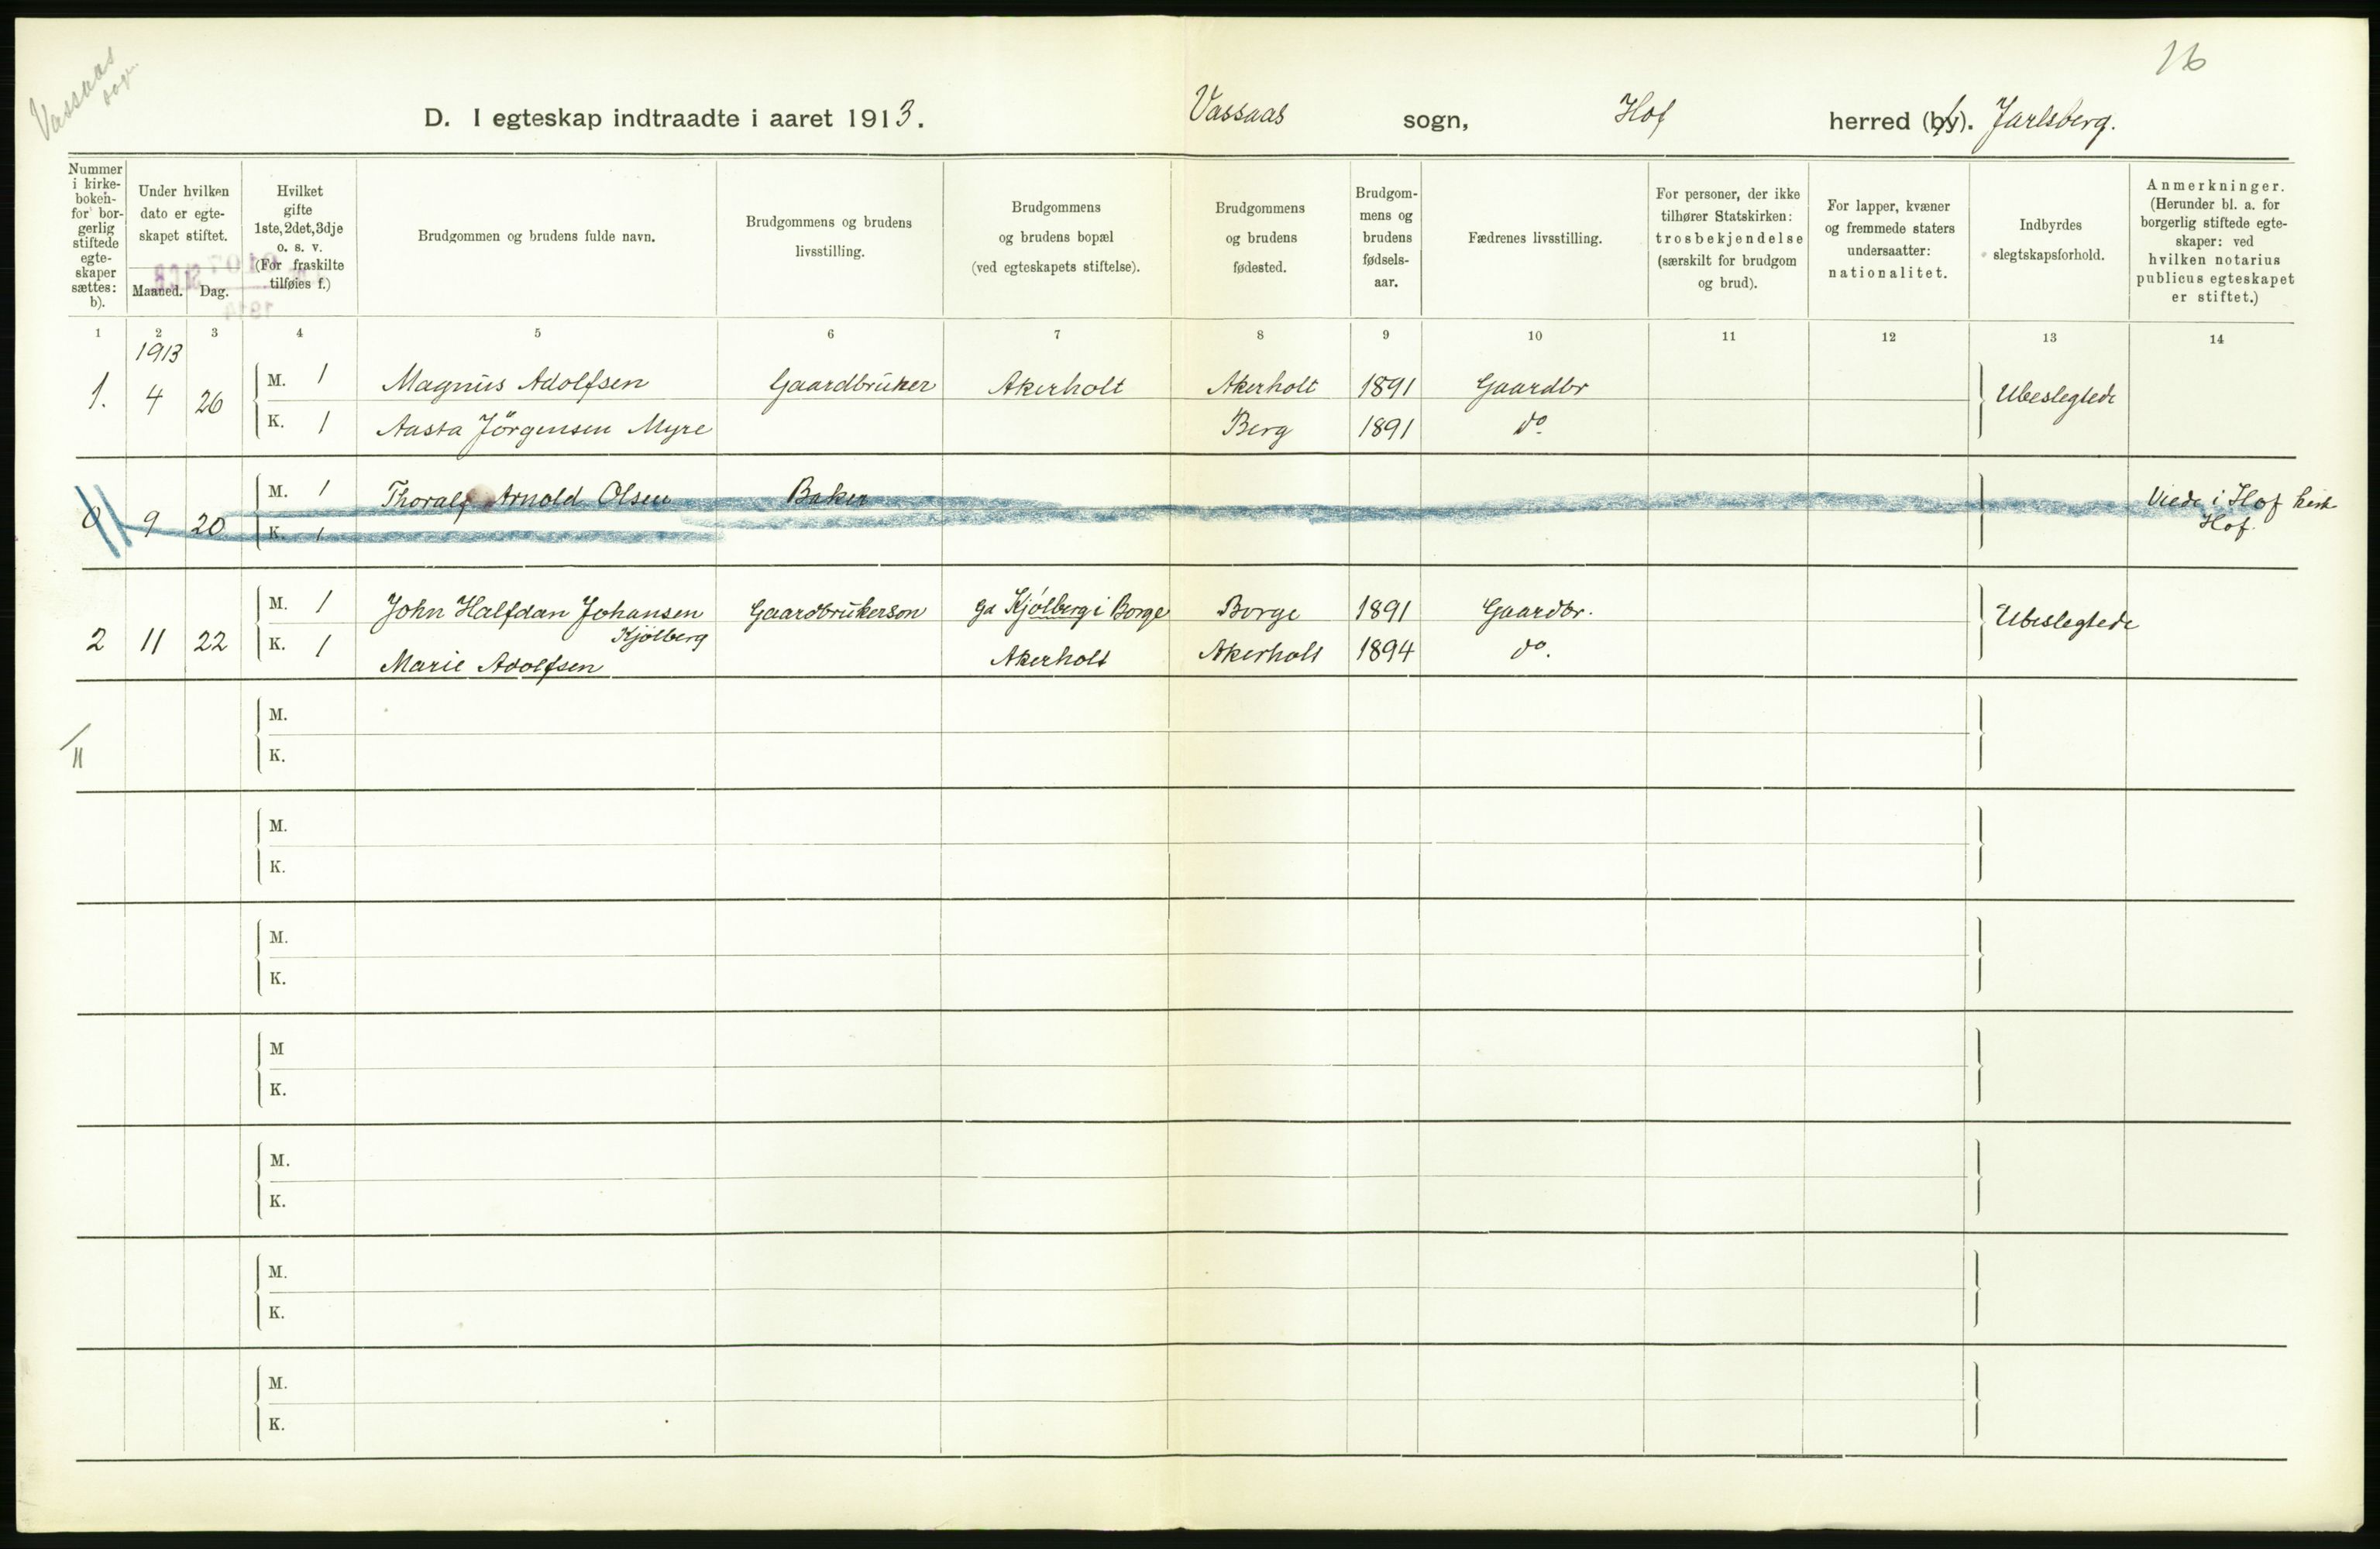 Vassaas
sogn
16
D. I egteskap indtraadte i aaret 1913. Vassaas sogn, Hof herred (by). Jarlsberg.
Nummer i kirke- boken for bor- gerlig stiftede egte- skaper sættes: b).
Under hvilken dato er egte- skapet stiftet.
Maaned. Dag.
Hvilket gifte 1ste, 2det, 3dje o. s. v. (For fraskilte tilføies f.)
Brudgommen og brudens fulde navn.
Brudgommens og brudens livsstilling.
Brudgommens og brudens bopæl (ved egteskapets stiftelse).
Brudgommens og brudens fødested.
Brudgom- mens og brudens fødsels- aar.
Fædrenes livsstilling.
For personer, der ikke tilhører Statskirken: trosbekjendelse (særskilt for brudgom og brud).
For lapper, kvæner og fremmede staters undersaatter: nationalitet.
Indbyrdes slegtskapsforhold.
Anmerkninger. (Herunder bl. a. for borgerlig stiftede egte- skaper: ved hvilken notarius publicus egteskapet er stiftet.)
1 2 3 4 5 6 7 8 9 10 11 12 13 14
1913
1. 4 26 M. 1 Magnus Adolfsen Gaardbruker Akerholt Akerholt 1891 Gaardbr Ubeslegtede
K. 1 Aasta Jörgensen Myre Berg 1891 do
0 9 20 M. 1 Thoralf Arnold Olsen Baker Viede i Hof kirk
K. 1 Hof.
2 11 22 M. 1 John Halfdan Johansen Gaardbrukerson Gd Kjølberg i Borge Borge 1891 Gaardbr. Ubeslegtede
Kjølberg
K. 1 Marie Adolfsen Akerholt Akerholt 1894 do.
M.
K.
M.
K.
M.
K.
M
K.
M.
K.
M.
K.
M.
K.